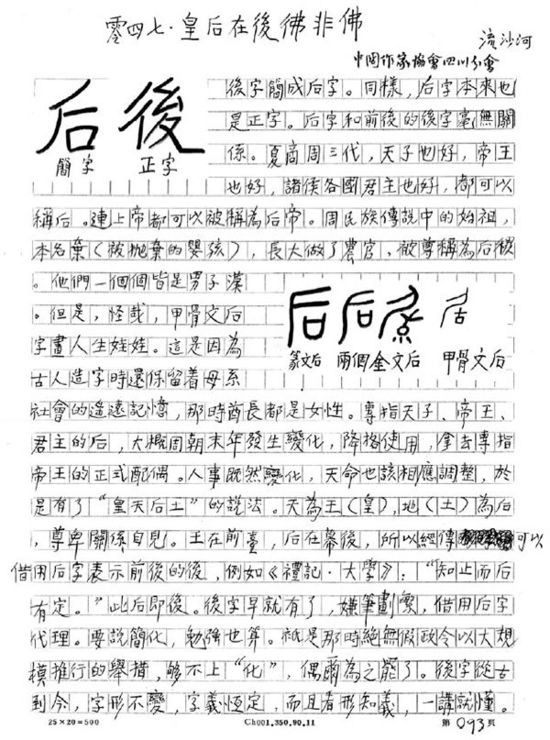 零四七·皇后在後彿非佛
流沙河
中國作家協會四川分會
后 後
簡字 正字
後字簡成后字。同樣，后字本來也
是正字。后字和前後的後字毫無關
係。夏商周三代，天子也好，帝王
也好，諸侯各國君主也好，都可以
稱后。連上帝都可以被稱為后帝。周民族傳說中的始祖，
本名棄（被拋棄的嬰孩），長大做了農官，被尊稱為后稷
。他們一個個皆是男子漢
。但是，怪哉，甲骨文后
字畫人生娃娃。這是因為
古人造字時還保留着母系
篆文后 兩個金文后 甲骨文后
社會的遙遠記憶，那時酋長都是女性。專指天子、帝王、
君主的后，大概周朝末年發生變化，降格使用，拿去專指
帝王的正式配偶。人事既然變化，天命也該相應調整，於
是有了“皇天后土”的說法。天為王（皇），地（土）為后
，尊卑關係自見。王在前臺，后在幕後，所以經傳可以
借用后字表示前後的後，例如《禮記·大學》：“知止而后
有定。”此后即後。後字早就有了，嫌筆劃繁，借用后字
代理。要說簡化，勉強也算。祇是那時絕無假政令以大規
模推行的舉措，夠不上“化”，偶爾為之罷了。後字從古
到今，字形不變，字義恆定，而且看形知義，一講就懂。
25×20=500 Ch001.350.90.11 第093頁